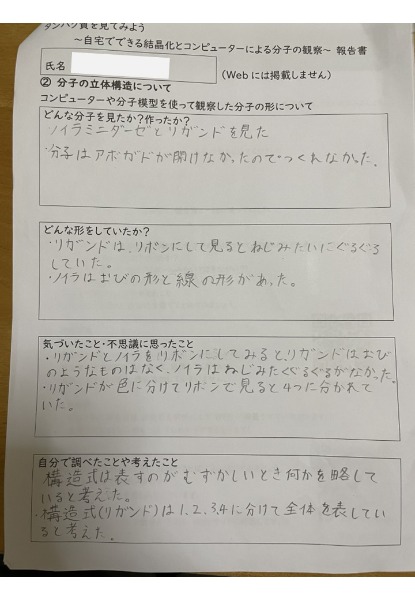 タンパク質を見てみよう
～自宅でできる結晶化とコンピューターによる分子の観察～ 報告書
氏名
(Web には掲載しません)
② 分子の立体構造について
コンピューターや分子模型を使って観察した分子の形について
どんな分子を見たか？作ったか？
ノイラミニダーゼとリガンドを見た
・分子はアボガドが開けなかったのでつくれなかった.
どんな形をしていたか？
・リガンドは、リボンにして見るとねじみたいにぐるぐる
していた。
・ノイラはおびの形と線の形があった。
気づいたこと・不思議に思ったこと
・リガンドとノイラをリボンにしてみると、リガンドはおび
のようなものはなく、ノイラはねじみたくぐるぐるがなかった。
・リガンドが色に分けてリボンで見ると4つに分かれて
いた。
自分で調べたことや考えたこと
・構造式は表すのがむずかしいとき何かを略して
いると考えた。
・構造式(リガンド)は1.2.3.4に分けて全体を表してい
ると考えた。